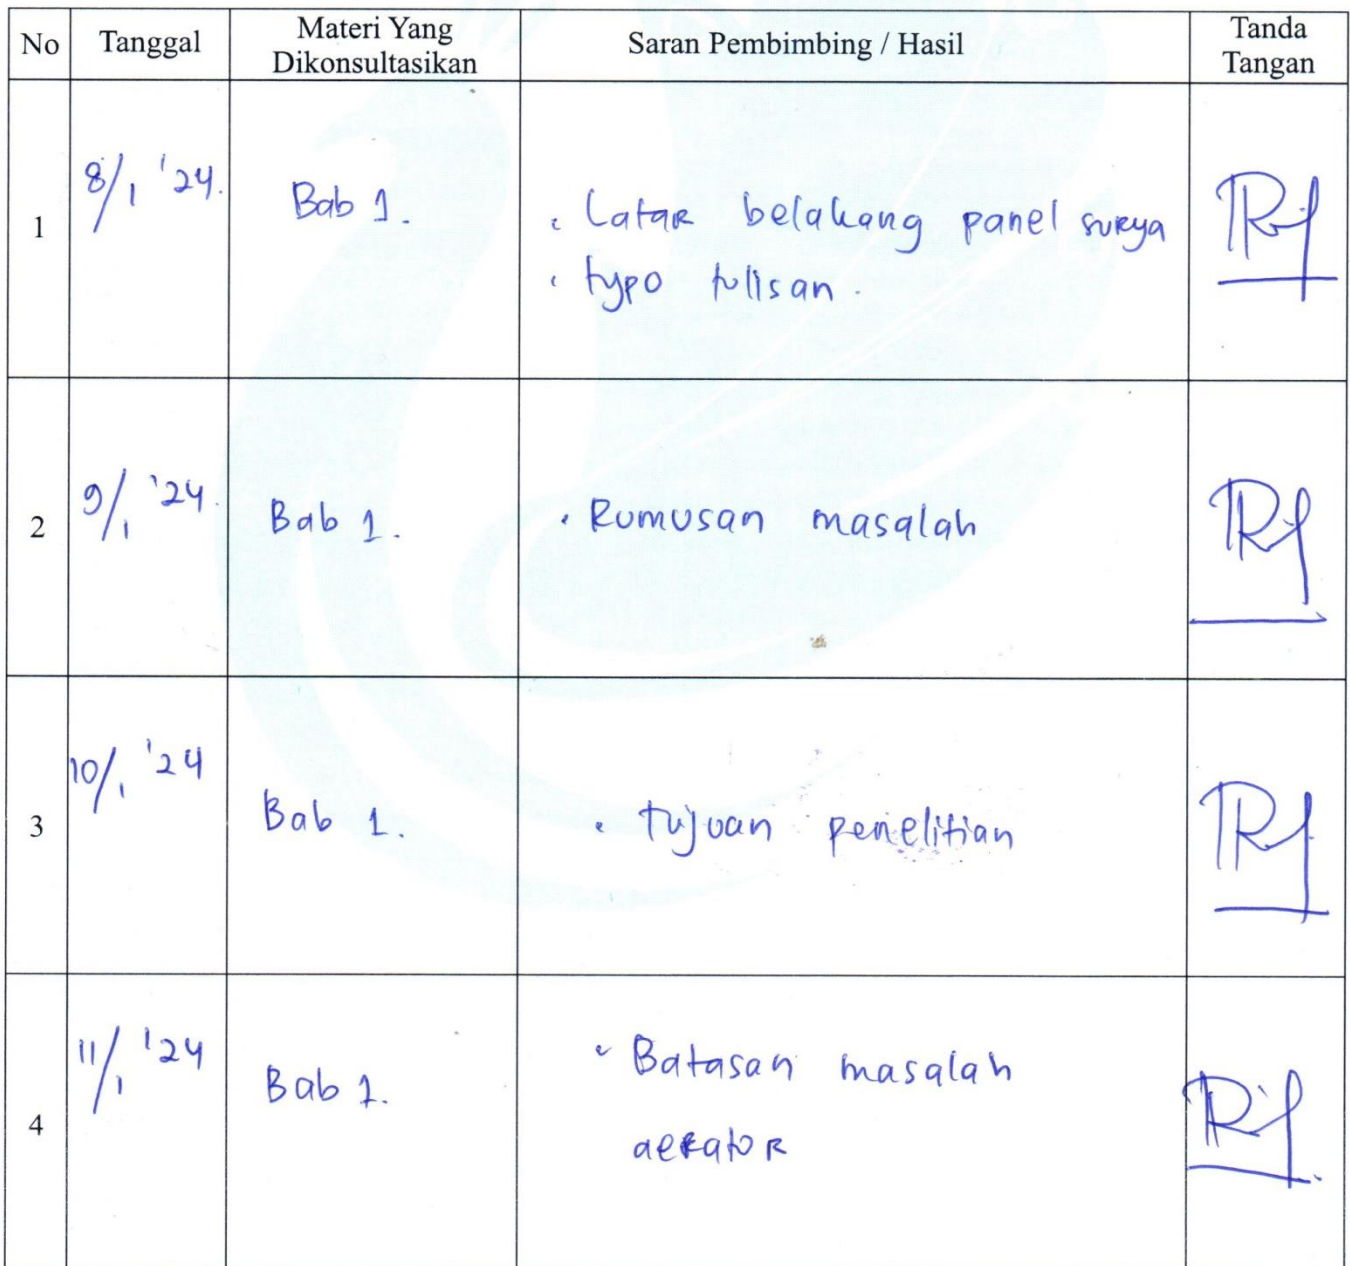 No Tanggal Materi Yang Dikonsultasikan Saran Pembimbing / Hasil Tanda Tangan
1 8/1 '24. Bab 1. • Latar belakang panel surya
• typo tulisan.
2 9/1 '24. Bab 1. • Rumusan masalah
3 10/1 '24 Bab 1. • tujuan penelitian
4 11/1 '24 Bab 1. • Batasan masalah
aerator